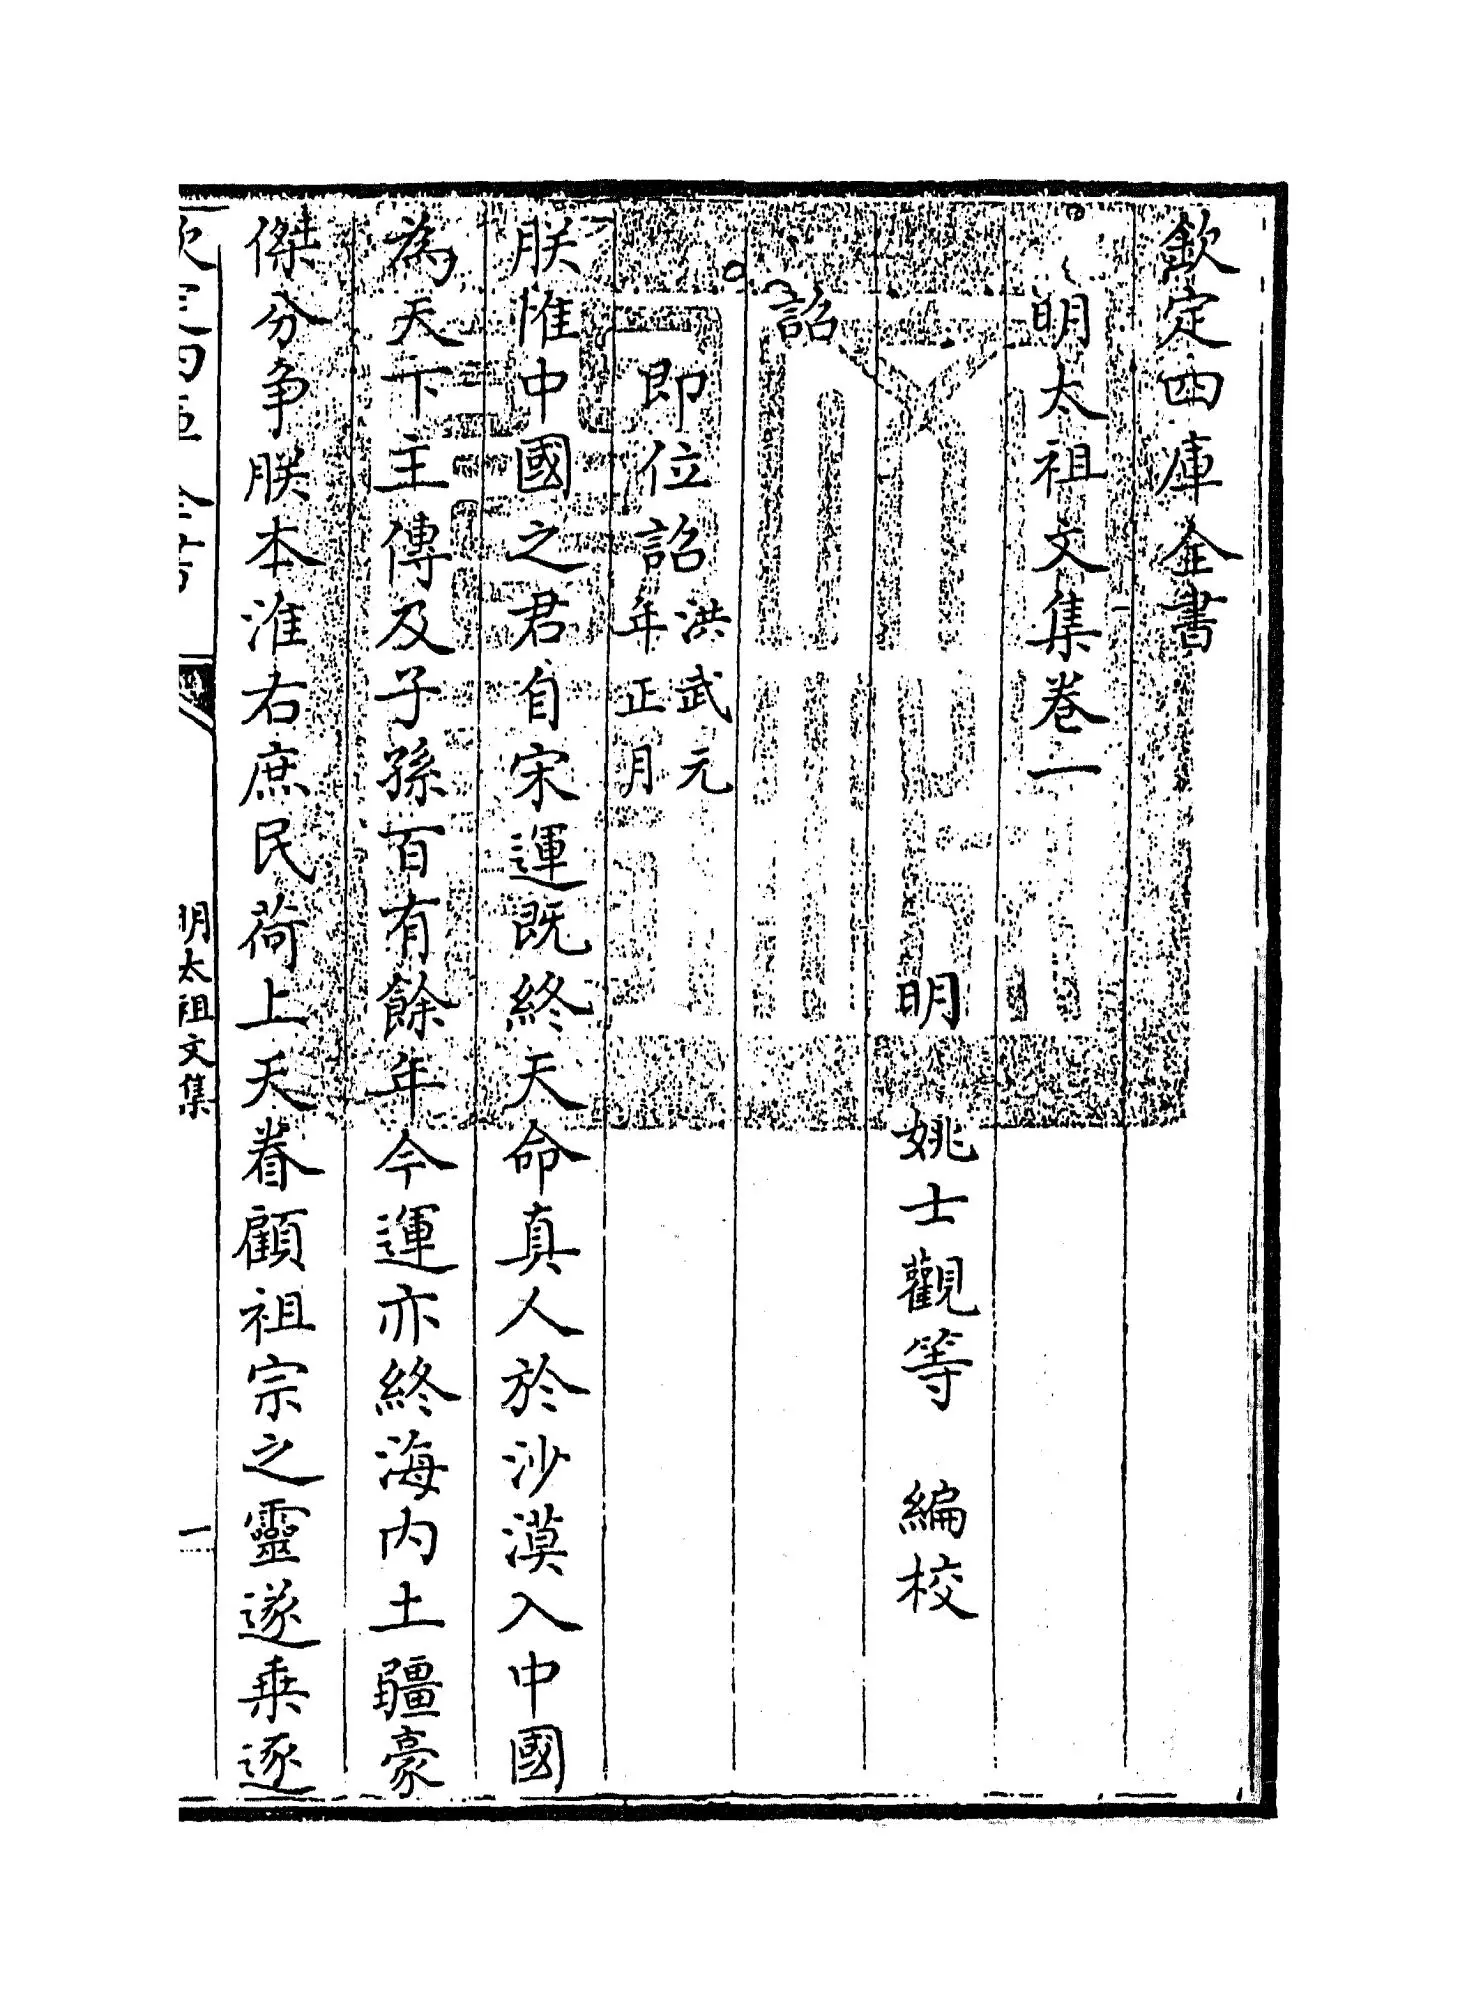 欽定四庫全書
明太祖文集卷一
明 姚士觀等 編校
詔
即位詔洪武元年正月
朕惟中國之君自宋運既終天命真人於沙漠入中國
為天下主傳及子孫百有餘年今運亦終海内土疆豪
傑分争朕本淮右庶民荷上天眷顧祖宗之靈遂乗逐
明太祖文集
一